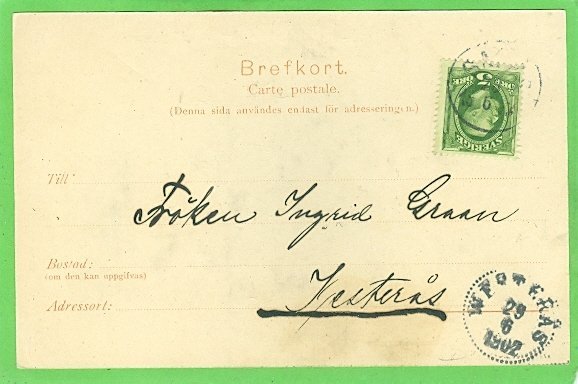 Brefkort.
Carte postale.
(Denna sida användes endast för adresseringen.)
5 ÖRE
SVERIGE
Till
Fröken Ingrid Graan
Bostad:
(om den kan uppgifvas)
Adressort:
Vesterås
WESTERÅS
29
6
1902